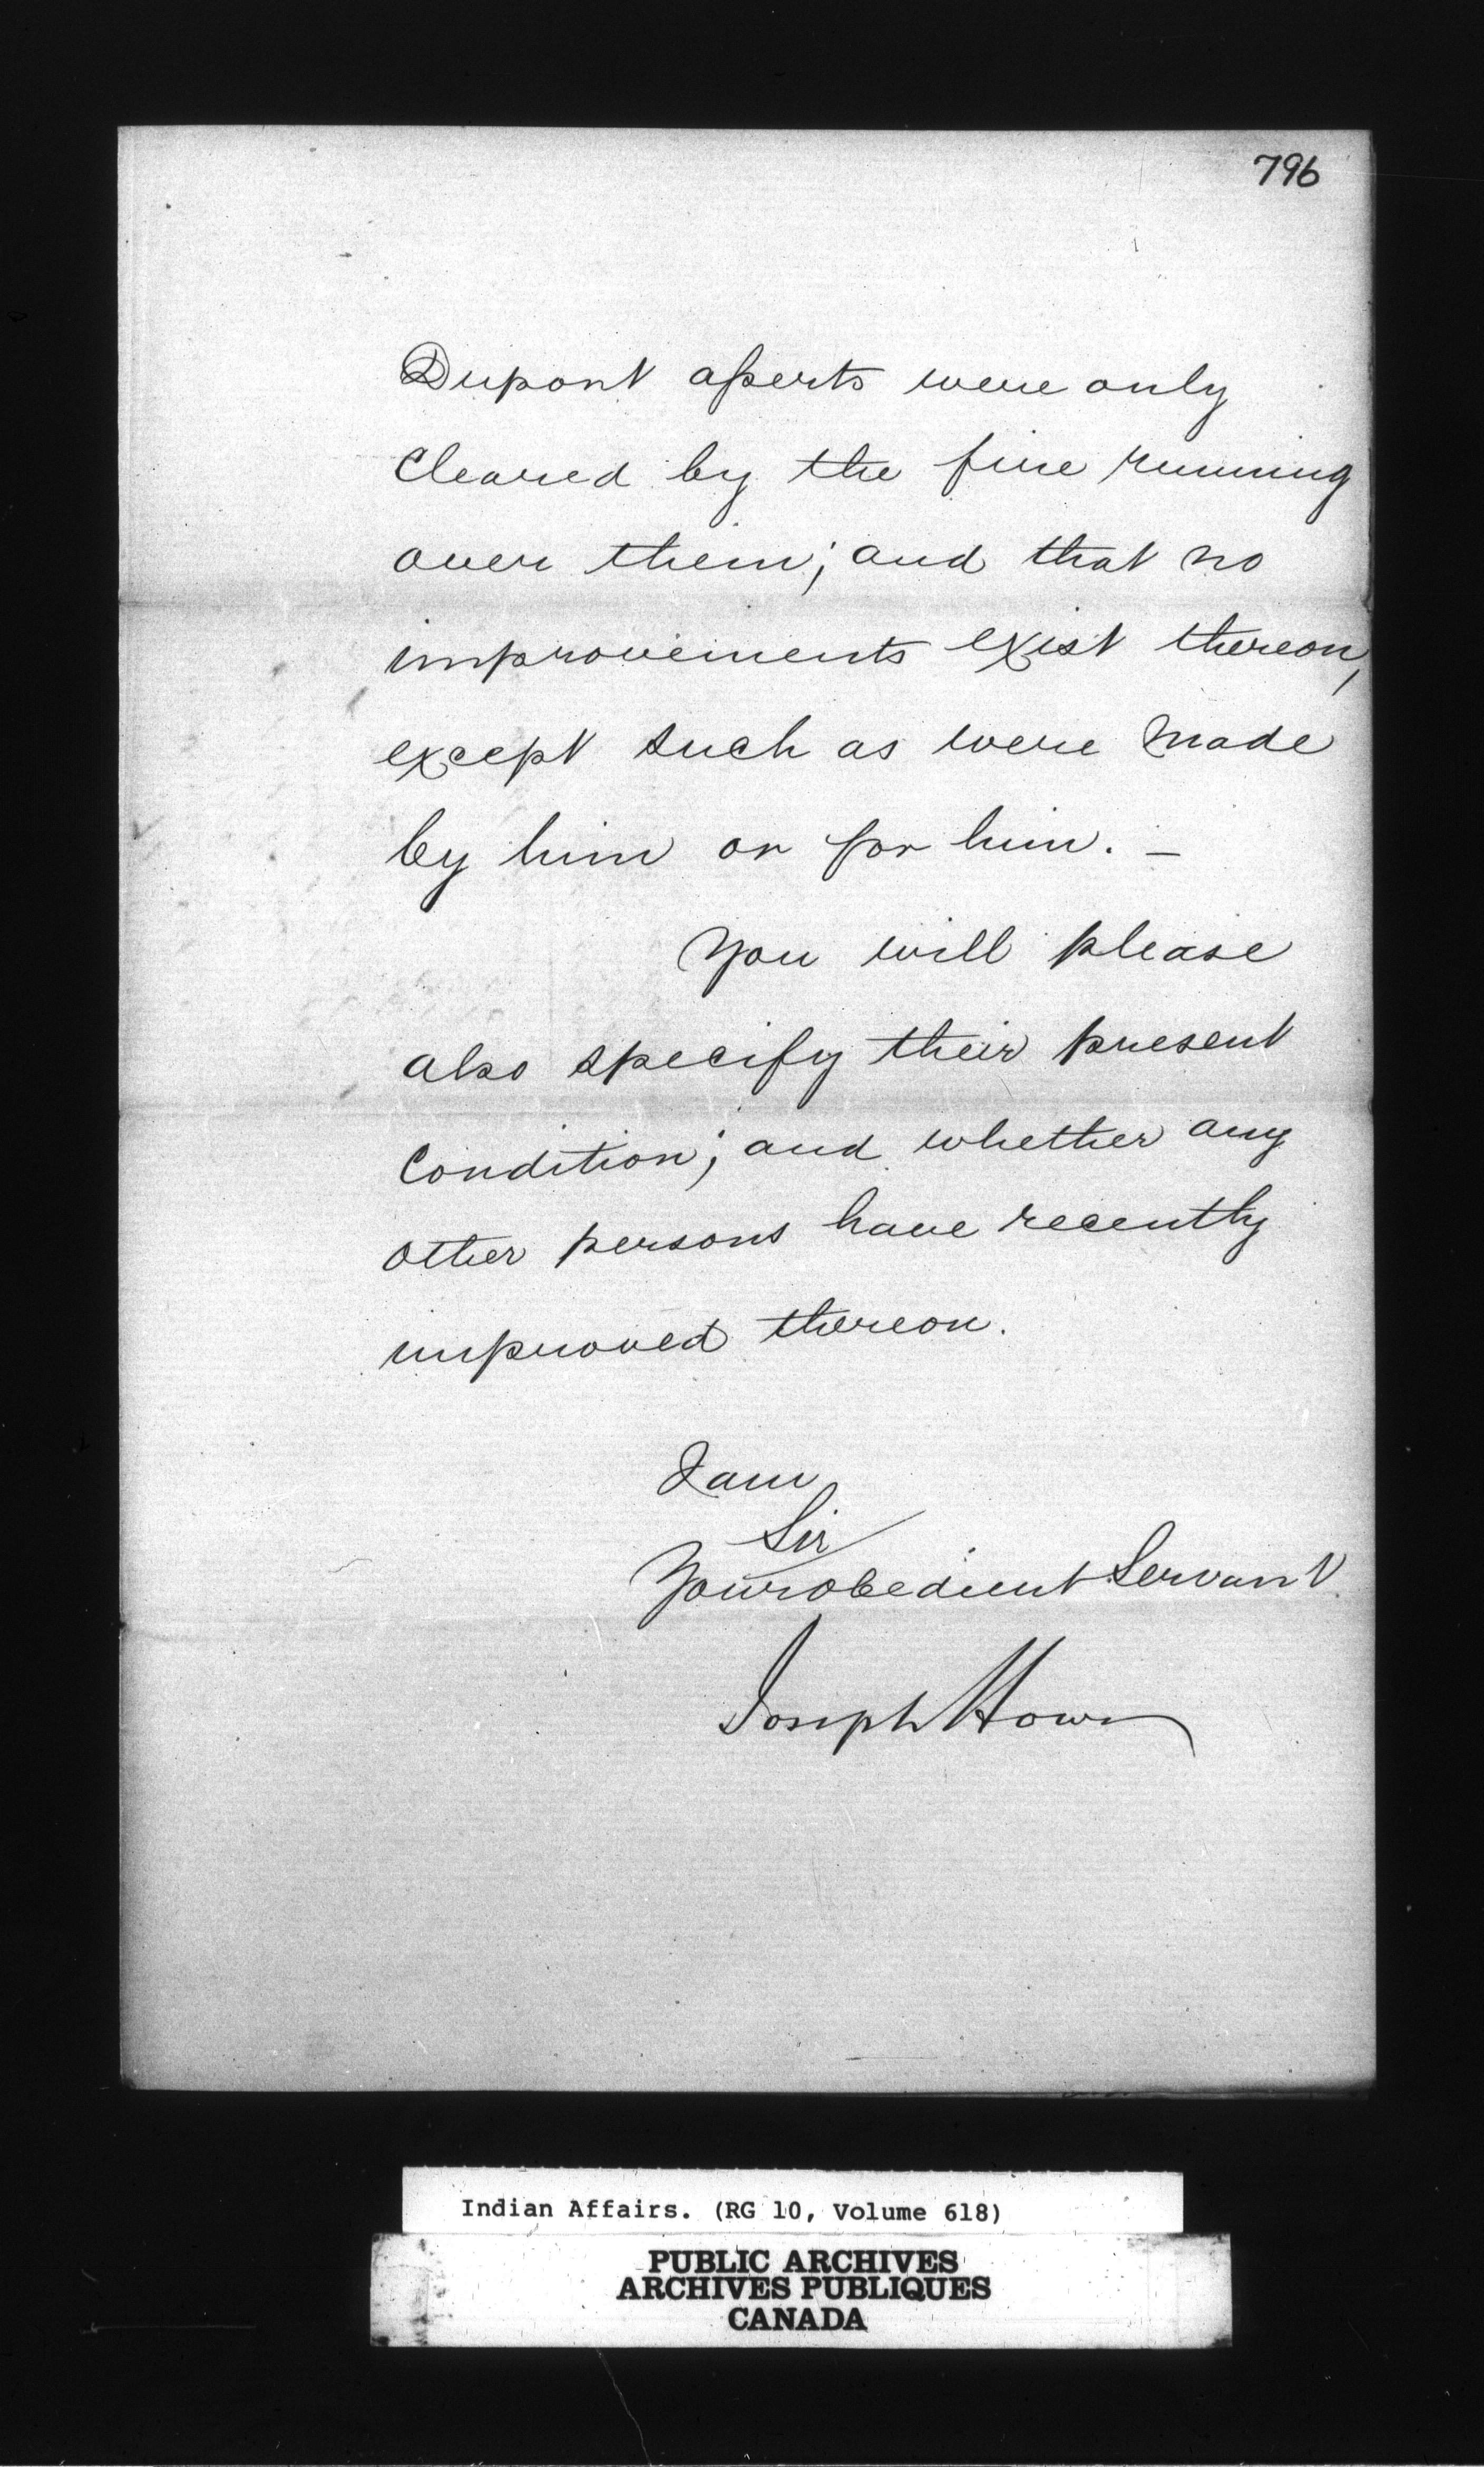 796
Dupont asserts were only
Cleared by the fire running
over them; and that no
improvements exist thereon,
except such as were made
by him or for him. –
You will please
also specify their present
Condition; and whether any
other persons have recently
improved thereon.
I am
Sir
Your obedient Servant
Joseph Howe
Indian Affairs. (RG 10, Volume 618)
PUBLIC ARCHIVES
ARCHIVES PUBLIQUES
CANADA